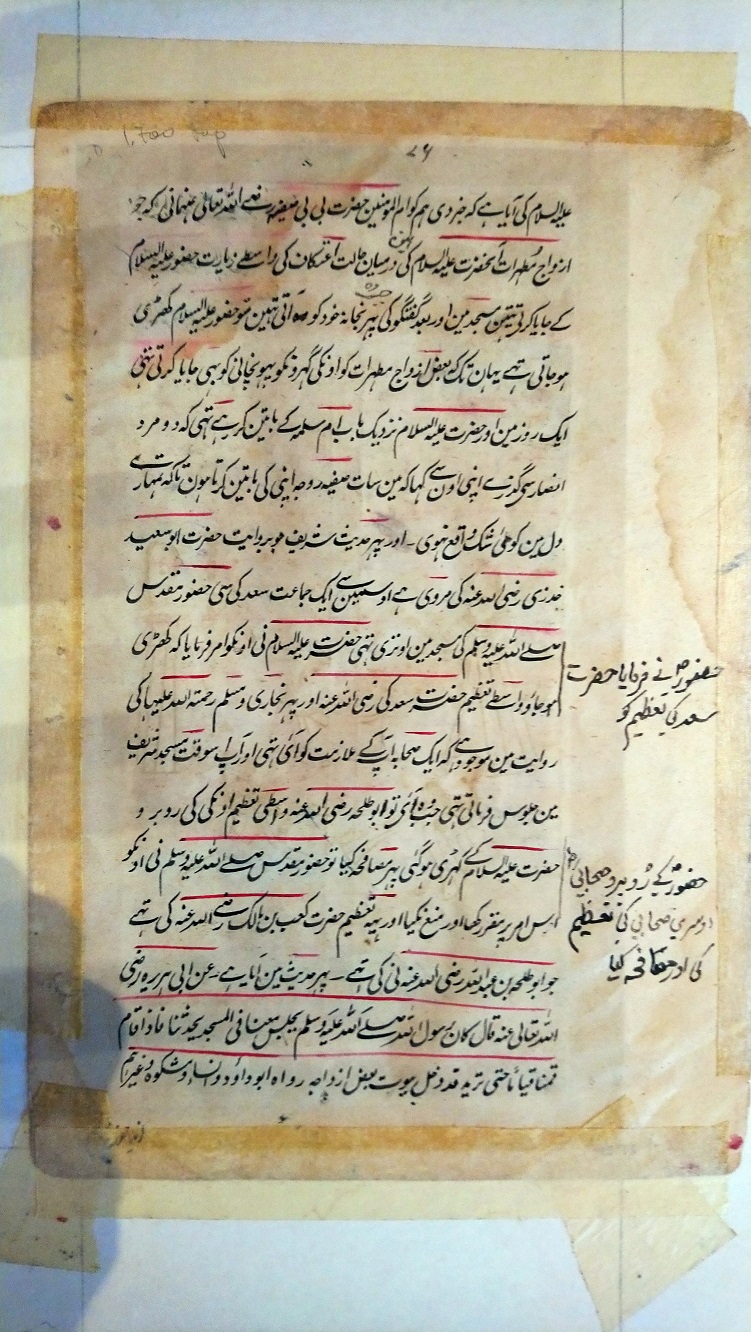 ۷۶
علیہ السلام کی آیا ہے کہ خبر دی ہم کو ام المومنین حضرت بی بی صفیہ رضے اللہ تعالی عنہا نی کہ جو
ازواج مطہرات آنحضرت علیہ السلام کی درمیان حالت اعتکاف کی واسطے زیارت حضور علیہ السلام
کے جایا کرتی تہین مسجد مین اور بعد گفتگو کی پہر بخانہ خود کو جب وہ آتی تہین تو حضور علیہ السلام کھڑی
ہوجاتی تہے یہان تک کہ بعض ازواج مطہرات کو اونکی گہرونکو پہونچانی کو بہی جایا کرتی تہی
ایک روز مین اور حضرت علیہ السلام نزدیک باب ام سلمہ کے باتین کر رہے تہی کہ دو مرد
انصاری گذرے اپنی اون سے کہا کہ مین سات صفیہ زوجہ اپنی کی باتین کرتا ہون تاکہ تمہارے
دل مین کوئی شک واقع نہوی۔ اور پہر حدیث شریف مو بروایت حضرت ابو سعید
خدری رضی اللہ عنہ کی مروی ہے اوسمین سے ایک جماعت سعد کی سی حضور مقدس
صلے اللہ علیہ وسلم کی مسجد مین اوتری تہی حضرت علیہ السلام نی اونکو امر فرمایا کہ کھڑی
ہوجاؤ واسطے تعظیم حضرت سعد کی رضی اللہ عنہ اور پہر بخاری و مسلم رحمتہ اللہ علیہما کی
روایت مین موجود ہے کہ ایک صحابہ آپ کے ملازمت کو آی تہی اور آپ اسوقت مسجد شریف
مین جلوس فرماتی تہی جب وہ آی تو ابو طلحہ رضی اللہ عنہ واسطی تعظیم اونکی کی روبرو
حضرت علیہ السلام کے کہڑی ہوگئی پہر مصافحہ کیا تو حضور مقدس صلے اللہ علیہ وسلم نی اونکو
اس امر پر مقرر رکھا اور منع نکیا اور یہ تعظیم حضرت کعب بن مالک رضے اللہ عنہ کی تہے
جو ابو طلحہ بن عبد اللہ رضی اللہ عنہ نی کی تہے۔ پہر حدیث مین آیا ہے۔ عن ابی ہریرہ رضی
اللہ تعالی عنہ قال کان رسول اللہ صلے اللہ علیہ وسلم یجلس معنا فی المسجد یحدثنا فاذا قام
قمنا قیاماً حتی نرید قد دخل بیوت بعض ازواجہ رواہ ابو داؤد و نساء و مشکوہ و غیرہم
حضورؐ نے فرمایا حضرت
سعد کی تعظیم کو
حضورؐ کے روبرو صحابی
دوسری صحابی کی تعظیم
کی اور مصافحہ کیا